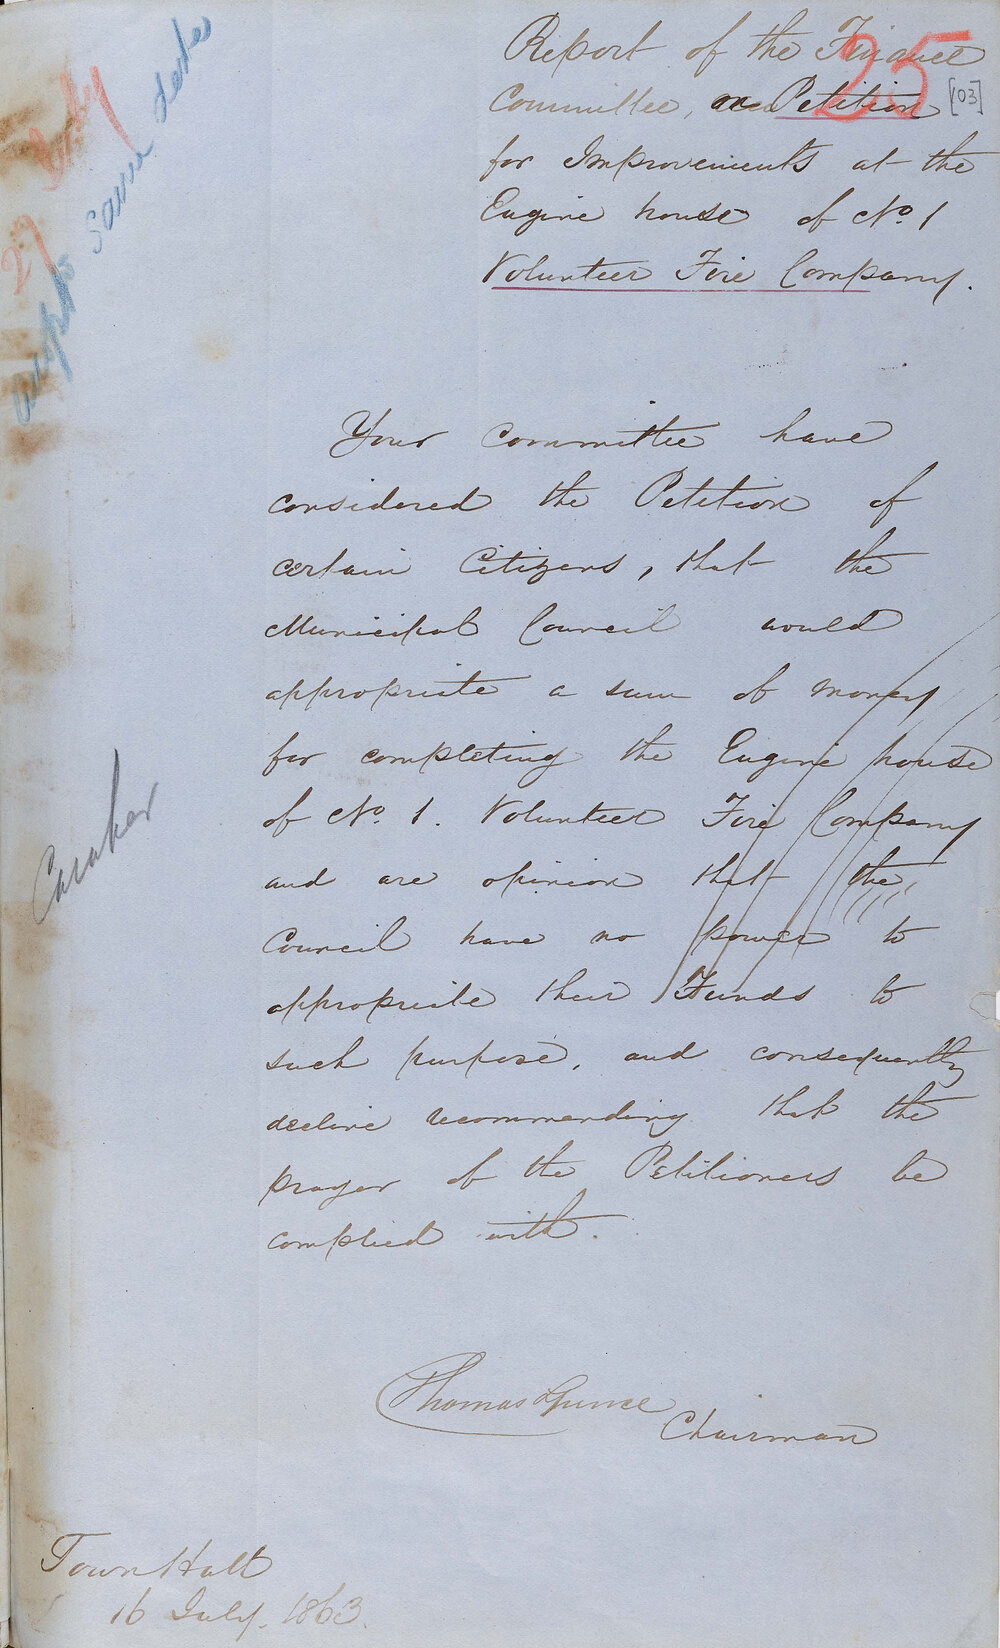 Report of the Finance
Committee, on Petition
for Improvements at the
Engine house of No. 1
Volunteer Fire Company.
25
[03]
27 July
same date
Your Committee have
considered the Petition of
certain Citizens, that the
Municipal Council would
appropriate a sum of money
for completing the Engine house
of No. 1. Volunteer Fire Company
and are opinion that the
Council have no power to
appropriate their Funds to
such purpose, and consequently
decline recommending that the
prayer of the Petitioners be
complied with.
Thomas Spence
Chairman
Town Hall
16 July. 1863.